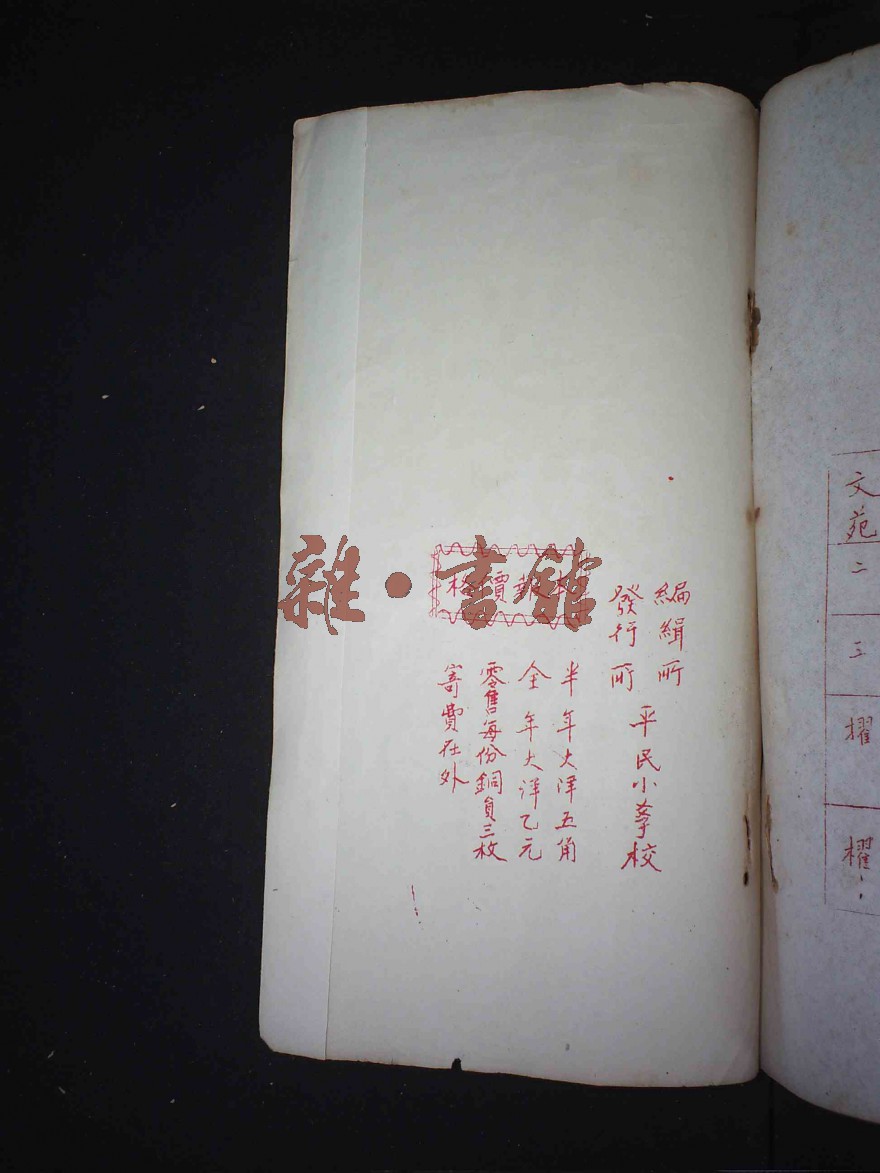 文苑
二
三
擢
櫂
編緝所
發行所
平民小學校
本報價格
半年大洋五角
全年大洋乙元
零售每份銅員三枚
寄費在外
雜·書館